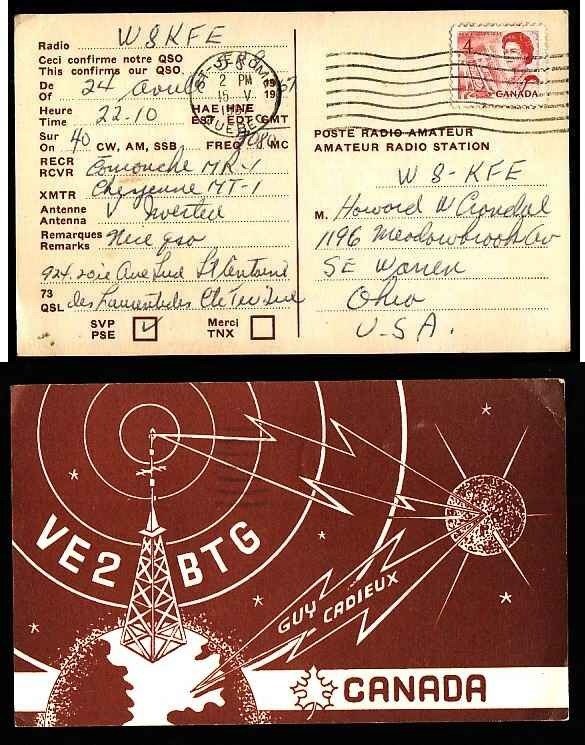 Radio W8KFE
Ceci confirme notre QSO
This confirms our QSO
De
Of 24 Aout 1967
19
Heure HAE HNE
Time 22-10 EST EDT GMT
Sur
On 40 CW, AM, SSB FREQ 7080 MC
RECR
RCVR Comanche MR-1
XMTR Cheyenne MT-1
Antenne
Antenna V Inverted
Remarques
Remarks Nice qso
924. 20ie Ave Sud St Antoine
73
QSL des Laurentides Cte Ter. Que
SVP
PSE ✓
Merci
TNX
ST-JEROME
2 PM
15 V
QUEBEC
4
CANADA
POSTE RADIO-AMATEUR
AMATEUR RADIO STATION
W8-KFE
M. Howard W Crondal
1196 Meadowbrook Av
SE Warren
Ohio
U.S.A.
VE2 BTG
GUY CADIEUX
CANADA